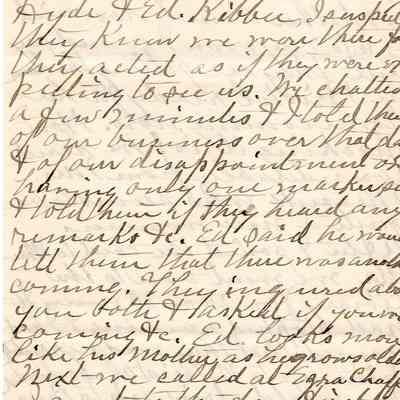 Hyde & Ed. Kibbee, I suspect
they knew we were there for
they acted as if they were ex
pecting to see us. We chatted
a few minutes & I told them
of our business over that da
& of our disappointment on
having only one marker se
& told them if they heard any
remarks &c. Ed said he would
tell them that there was anoth
coming. They inquired abo
you both & asked if you w
coming &c. Ed. looks more
like his Mother as he grows old
Next we called at Ezra Chaff